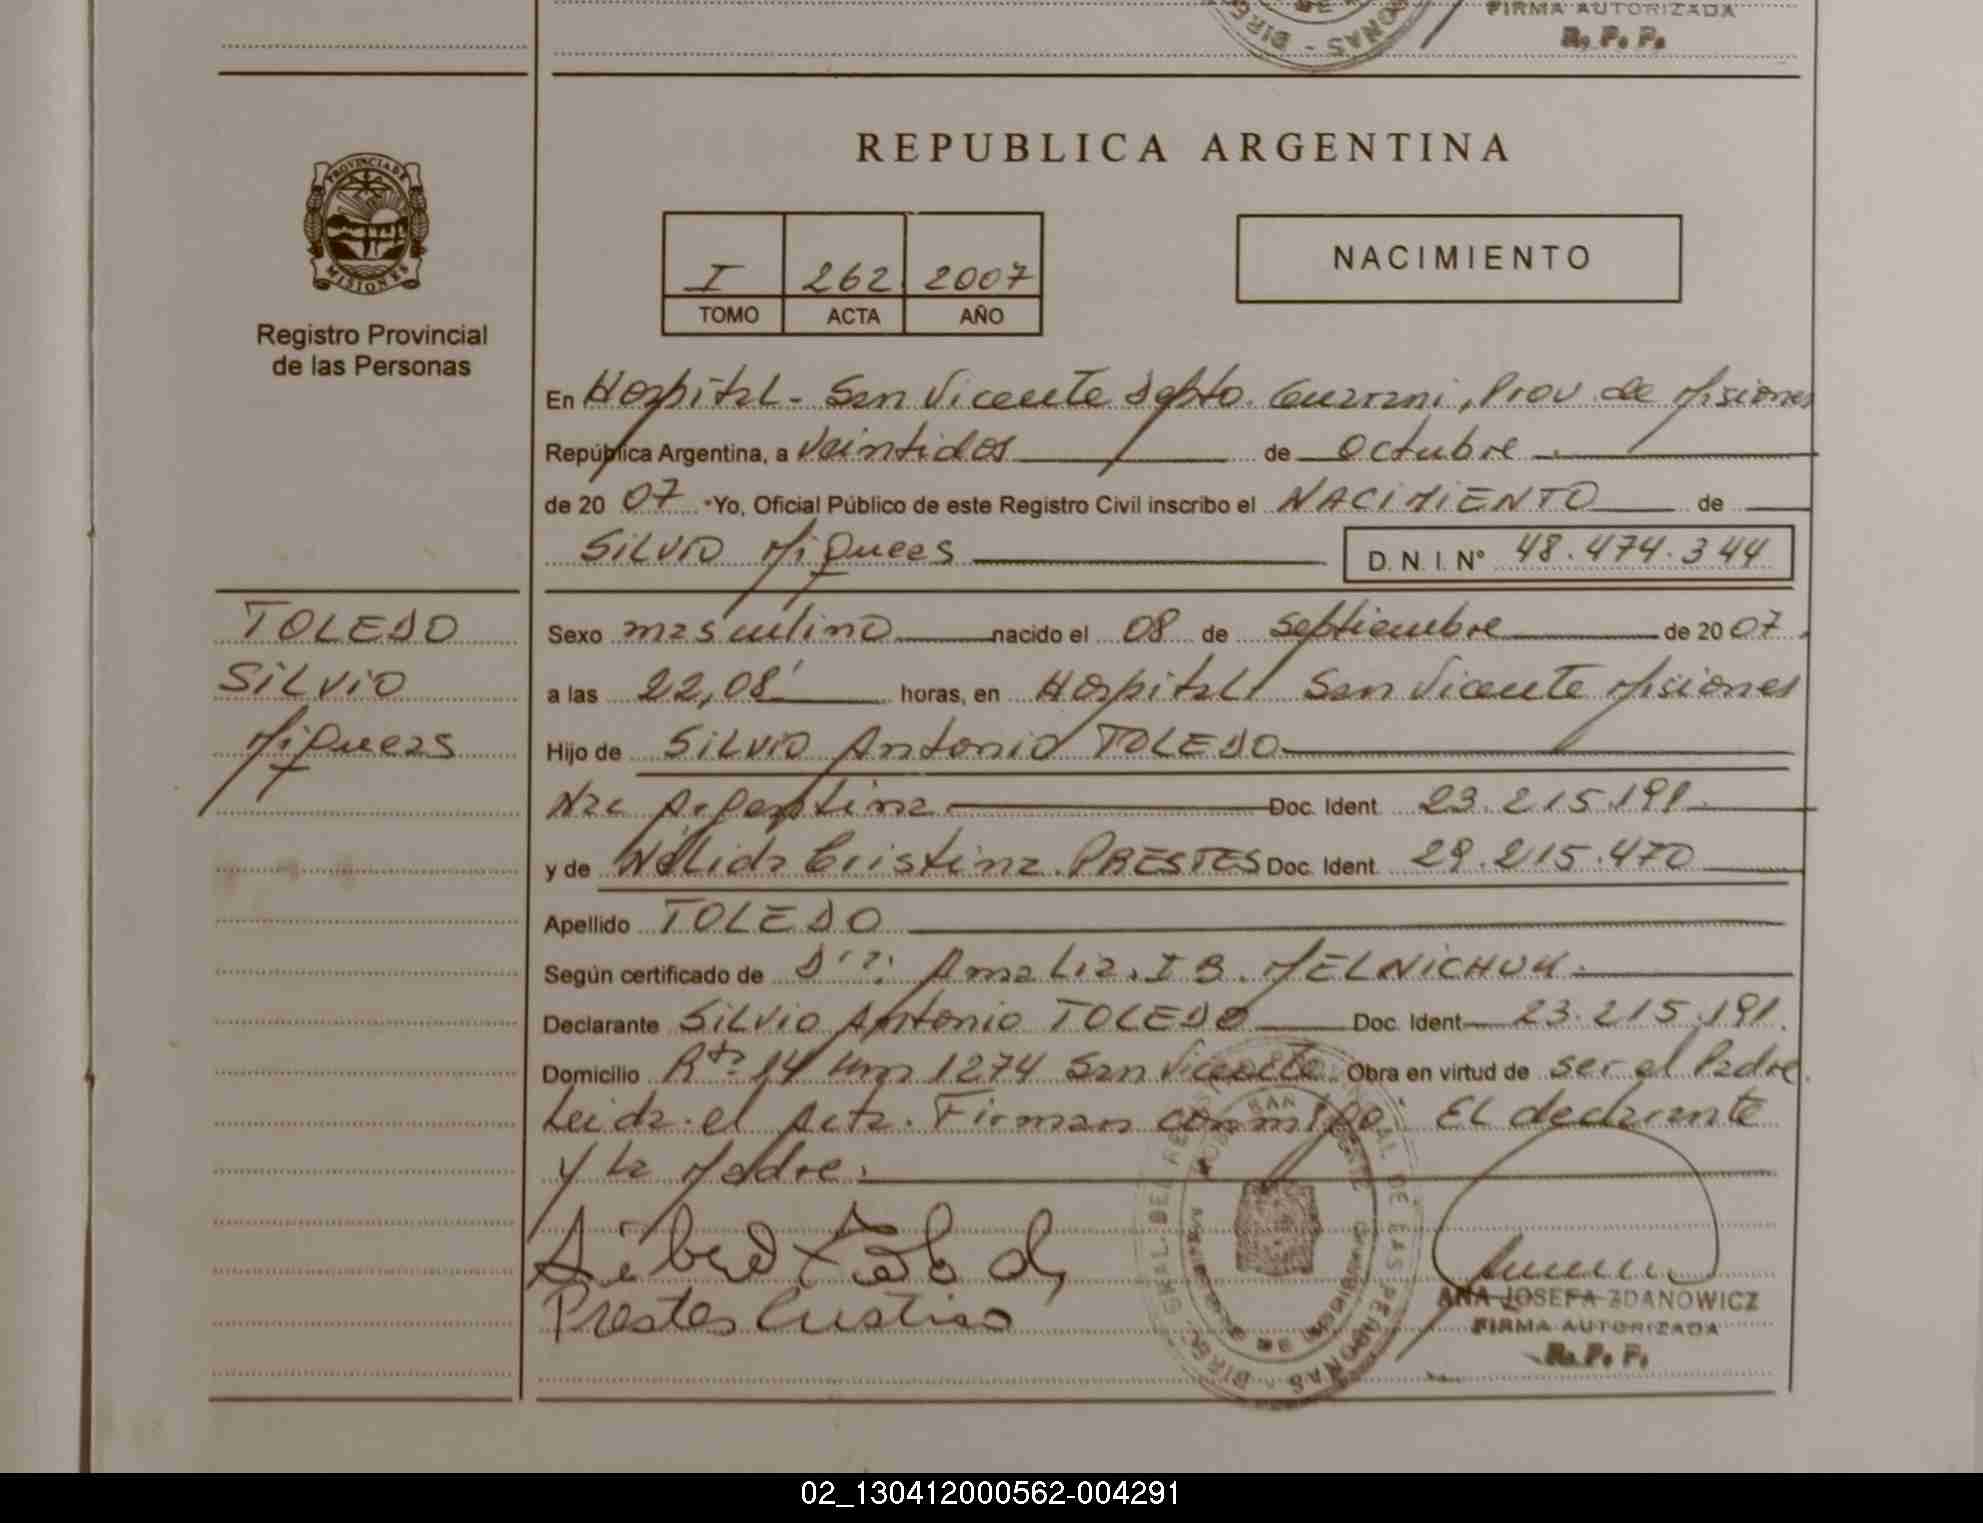 FIRMA AUTORIZADA
R. P. P.
PROVINCIA DE
MISIONES
Registro Provincial
de las Personas
REPUBLICA ARGENTINA
I 262 2007
TOMO ACTA AÑO
NACIMIENTO
En Hospital - San Vicente Depto. Guarani, Prov. de Misiones
República Argentina, a veintidos de octubre
de 20 07 Yo, Oficial Público de este Registro Civil inscribo el NACIMIENTO de
SILVIO Miqueas D. N. I. Nº 48.474.344
TOLEDO
SILVIO
Miqueas
Sexo masculino nacido el 08 de septiembre de 20 07.
a las 22,08' horas, en Hospital San Vicente Misiones
Hijo de SILVIO Antonio TOLEDO
Nac Argentina Doc. Ident. 23.215.191
y de Nélida Cristina PRESTES Doc. Ident. 29.215.470
Apellido TOLEDO
Según certificado de Dra: Amalia. I B. MELNICHUK.
Declarante SILVIO Antonio TOLEDO Doc. Ident 23.215.191.
Domicilio Rta 14 Km 1274 San Vicente Obra en virtud de ser el Padre.
Leida el Acta. Firman conmigo: El declarante
y la Madre.
Prestes Cristina
ANA JOSEFA ZDANOWICZ
FIRMA AUTORIZADA
R. P. P.
02_130412000562-004291